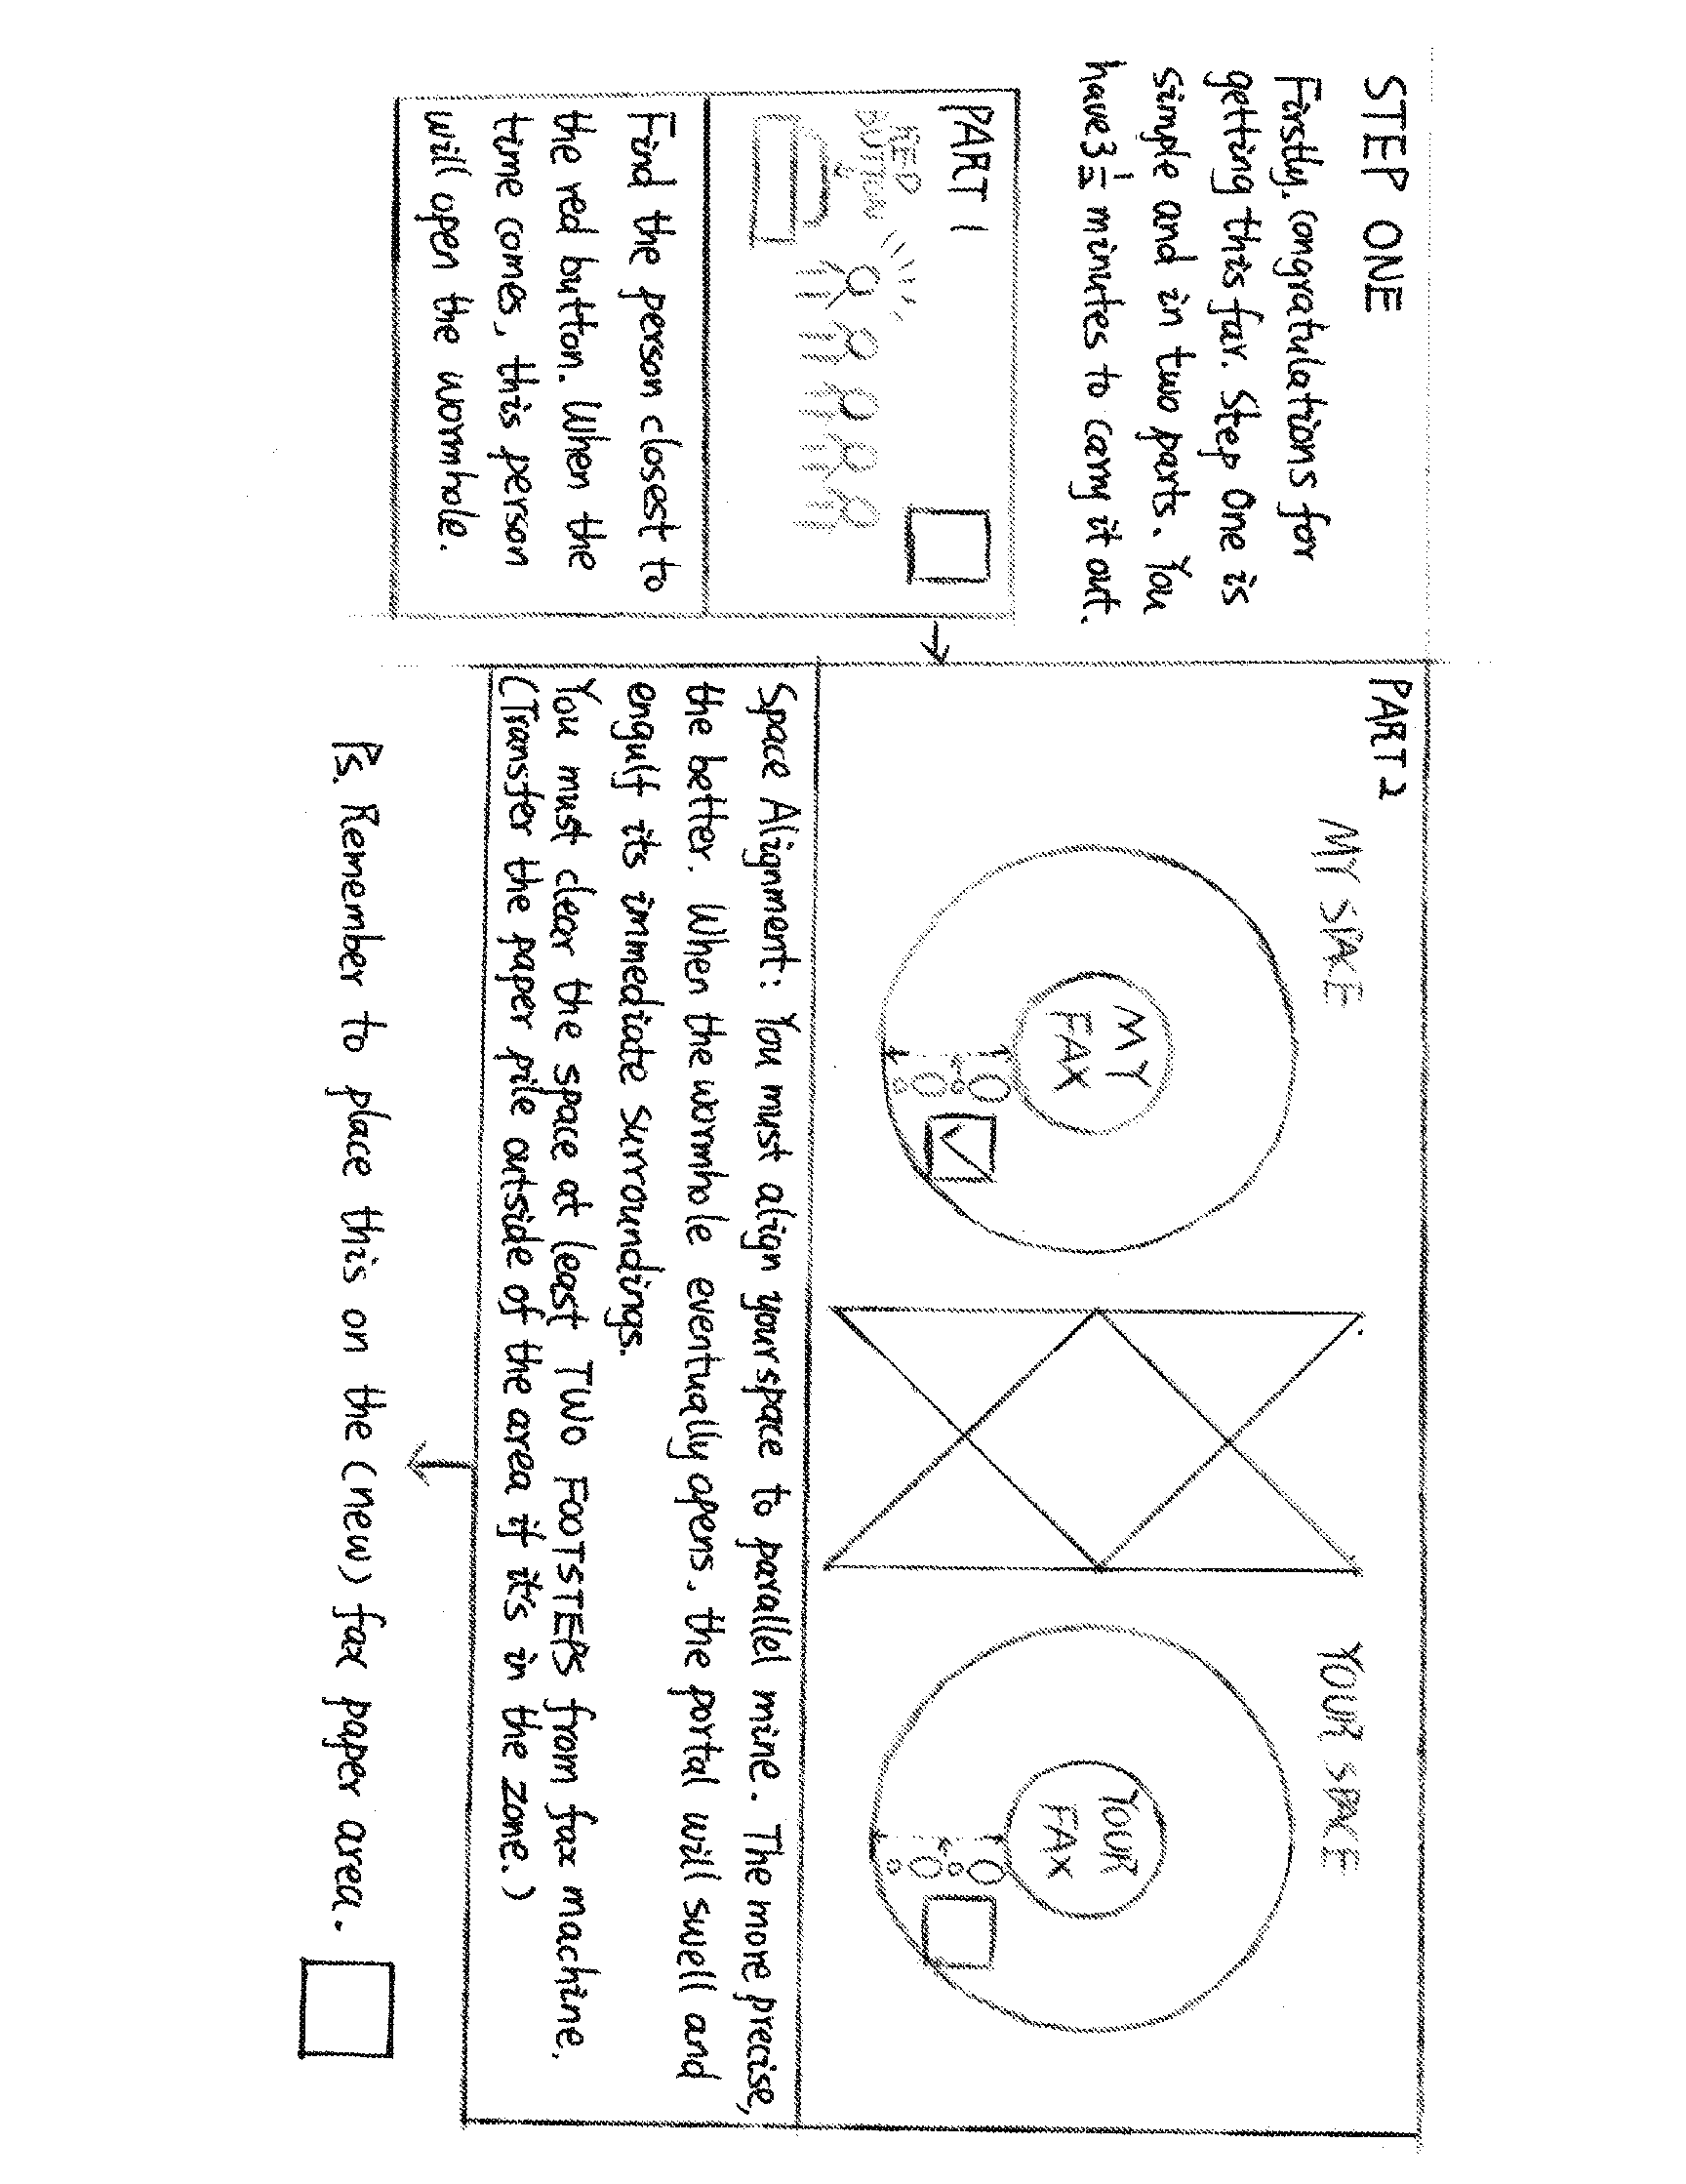 STEP ONE
Firstly, congratulations for
getting this far. Step One is
simple and in two parts. You
have 3 1/2 minutes to carry it out.
PART 1
RED
BUTTON
Find the person closest to
the red button. When the
time comes, this person
will open the wormhole.
PART 2
MY SPACE
MY
FAX
YOUR SPACE
YOUR
FAX
Space Alignment: You must align your space to parallel mine. The more precise,
the better. When the wormhole eventually opens, the portal will swell and
engulf its immediate surroundings.
You must clear the space at least TWO FOOTSTEPS from fax machine.
(Transfer the paper pile outside of the area if it's in the zone.)
Ps. Remember to place this on the (new) fax paper area.